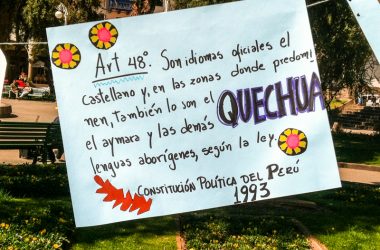 Art 48°. Son idiomas oficiales el
castellano y, en las zonas donde predomi
nen, También lo son el QUECHUA
el aymara y las demás
lenguas aborígenes, según la ley.
CONSTITUCIÓN POLÍTICA DEL PERÚ
1993